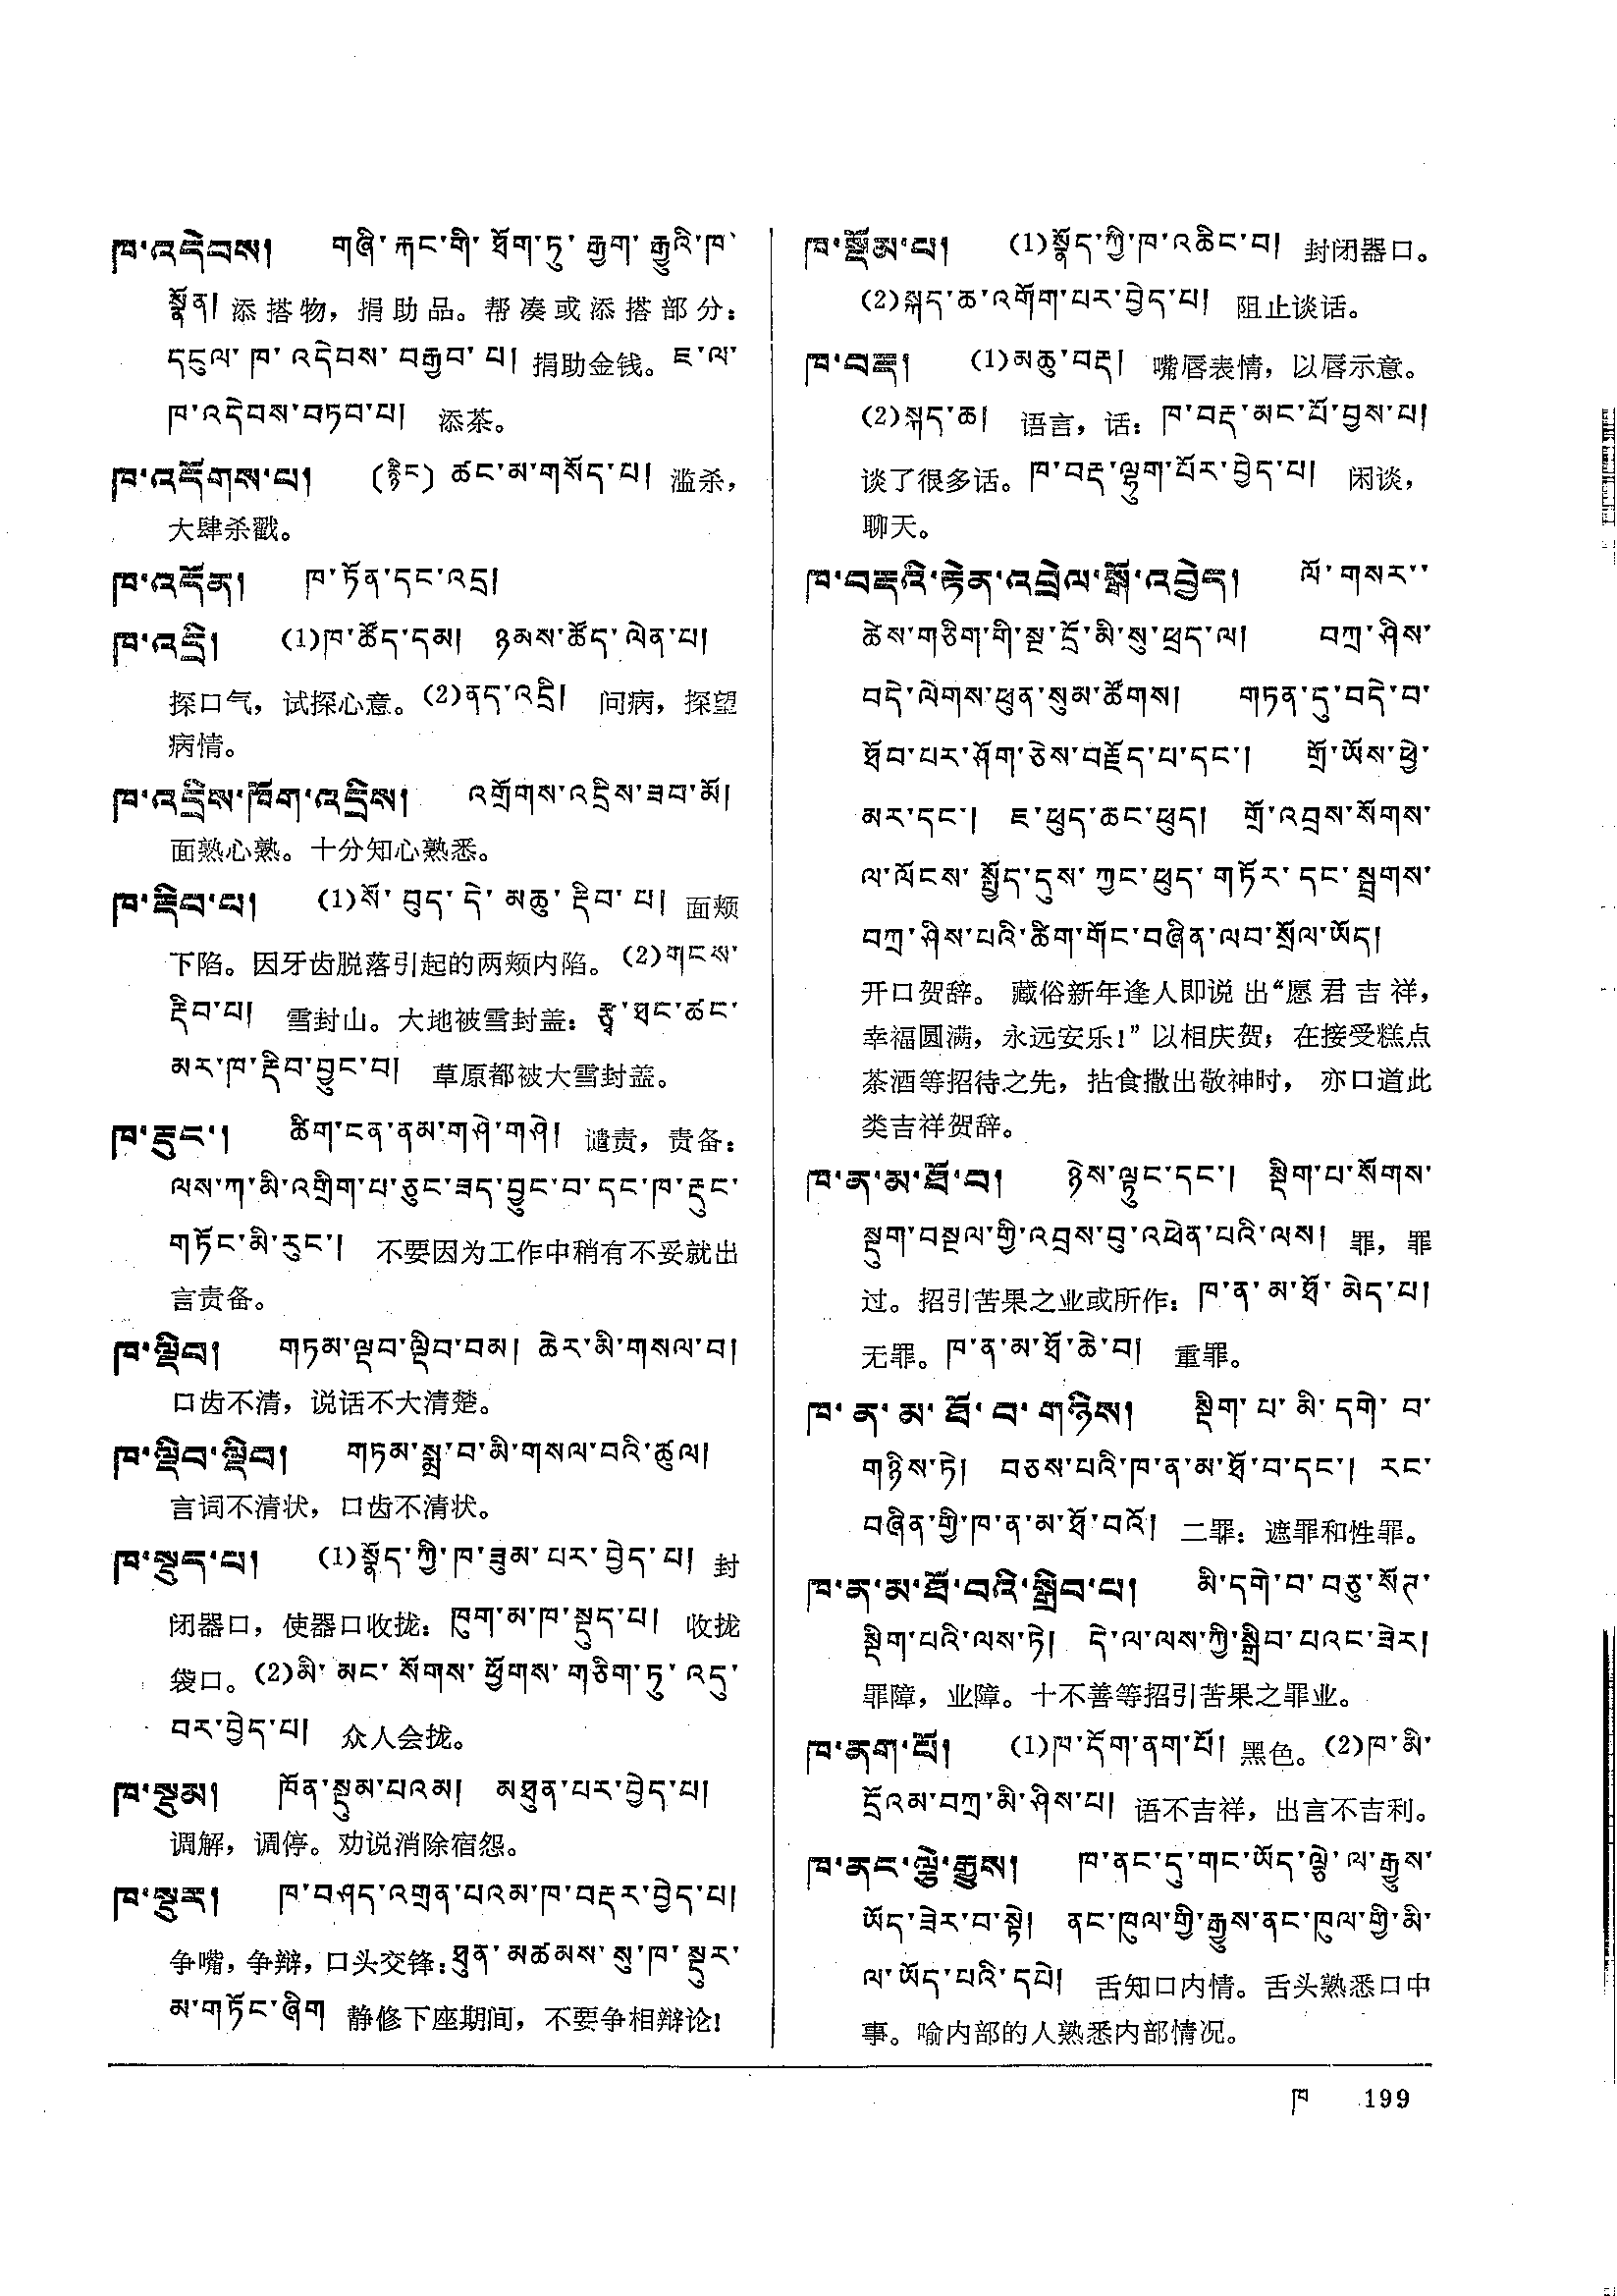 ཁ་འདེབས། གཞི་རྐང་གི་ཐོག་ཏུ་རྒྱག་རྒྱུའི་ཁ་
སྣོན། 添搭物，捐助品。帮凑或添搭部分：
དངུལ་ཁ་འདེབས་བརྒྱབ་པ། 捐助金钱。ཇ་ལ་
ཁ་འདེབས་བཏབ་པ། 添茶。
ཁ་འདོགས་པ། (རྙིང) ཚང་མ་གསོད་པ། 滥杀，
大肆杀戳。
ཁ་འདོན། ཁ་ཏོན་དང་འདྲ།
ཁ་འདྲི། (1)ཁ་ཚོད་དམ། ཉམས་ཚོད་ལེན་པ།
探口气，试探心意。(2)ནད་འདྲི། 问病，探望
病情。
ཁ་འདྲིས་ཁོག་འདྲིས། འགྲོགས་འདྲིས་ཟབ་མོ།
面熟心熟。十分知心熟悉。
ཁ་རྡིབ་པ། (1)སོ་བུད་དེ་མཆུ་རྡིབ་པ། 面颊
下陷。因牙齿脱落引起的两颊内陷。(2)གངས་
རྡིབ་པ། 雪封山。大地被雪封盖：རྩྭ་ཐང་ཚང་
མར་ཁ་རྡིབ་བྱུང་བ། 草原都被大雪封盖。
ཁ་རྡུང་། ཚིག་ངན་ནམ་གཤེ་གཤེ། 谴责，责备：
ལས་ཀ་མི་འགྲིག་པ་ཅུང་ཟད་བྱུང་བ་དང་ཁ་རྡུང་
གཏོང་མི་རུང་། 不要因为工作中稍有不妥就出
言责备。
ཁ་ལྡིབ། གཏམ་ལྡབ་ལྡིབ་བམ། ཆེར་མི་གསལ་བ།
口齿不清，说话不大清楚。
ཁ་ལྡིབ་ལྡིབ། གཏམ་སྨྲ་བ་མི་གསལ་བའི་ཚུལ།
言词不清状，口齿不清状。
ཁ་སྡུད་པ། (1)སྣོད་ཀྱི་ཁ་ཟུམ་པར་བྱེད་པ། 封
闭器口，使器口收拢：ཁུག་མ་ཁ་སྡུད་པ། 收拢
袋口。(2)མི་མང་སོགས་ཕྱོགས་གཅིག་ཏུ་འདུ་
བར་བྱེད་པ། 众人会拢。
ཁ་སྡུམ། ཁོན་སྡུམ་པའམ། མཐུན་པར་བྱེད་པ།
调解，调停。劝说消除宿怨。
ཁ་སྡུར། ཁ་བཤད་འགྲན་པའམ་ཁ་བརྡར་བྱེད་པ།
争嘴，争辩，口头交锋：ཐུན་མཚམས་སུ་ཁ་སྡུར་
མ་གཏོང་ཞིག 静修下座期间，不要争相辩论！
ཁ་སྡོམ་པ། (1)སྣོད་ཀྱི་ཁ་འཆིང་བ། 封闭器口。
(2)སྐད་ཆ་འགོག་པར་བྱེད་པ། 阻止谈话。
ཁ་བརྡ། (1)མཆུ་བརྡ། 嘴唇表情，以唇示意。
(2)སྐད་ཆ། 语言，话：ཁ་བརྡ་མང་པོ་བྱས་པ།
谈了很多话。ཁ་བརྡ་ལྷུག་པོར་བྱེད་པ། 闲谈，
聊天。
ཁ་བརྡའི་རྟེན་འབྲེལ་སྒོ་འབྱེད། ལོ་གསར་
ཚེས་གཅིག་གི་སྔ་དྲོ་མི་སུ་ཕྲད་ལ། བཀྲ་ཤིས་
བདེ་ལེགས་ཕུན་སུམ་ཚོགས། གཏན་དུ་བདེ་བ་
ཐོབ་པར་ཤོག་ཅེས་བརྗོད་པ་དང་། གྲོ་ཡོས་ཕྱེ་
མར་དང་། ཇ་ཕུད་ཆང་ཕུད། གྲོ་འབྲས་སོགས་
ལ་ལོངས་སྤྱོད་དུས་ཀྱང་ཕུད་གཏོར་དང་སྦྲགས་
བཀྲ་ཤིས་པའི་ཚིག་གོང་བཞིན་ལབ་སྲོལ་ཡོད།
开口贺辞。 藏俗新年逢人即说出“愿君吉祥，
幸福圆满，永远安乐！”以相庆贺；在接受糕点
茶酒等招待之先，拈食撒出敬神时， 亦口道此
类吉祥贺辞。
ཁ་ན་མ་ཐོ་བ། ཉེས་ལྟུང་དང་། སྡིག་པ་སོགས་
སྡུག་བསྔལ་གྱི་འབྲས་བུ་འཕེན་པའི་ལས། 罪，罪
过。招引苦果之业或所作：ཁ་ན་མ་ཐོ་མེད་པ།
无罪。ཁ་ན་མ་ཐོ་ཆེ་བ། 重罪。
ཁ་ན་མ་ཐོ་བ་གཉིས། སྡིག་པ་མི་དགེ་བ་
གཉིས་ཏེ། བཅས་པའི་ཁ་ན་མ་ཐོ་བ་དང་། རང་
བཞིན་གྱི་ཁ་ན་མ་ཐོ་བའོ། 二罪：遮罪和性罪。
ཁ་ན་མ་ཐོ་བའི་སྒྲིབ་པ། མི་དགེ་བ་བཅུ་སོཊ་
སྡིག་པའི་ལས་ཏེ། དེ་ལ་ལས་ཀྱི་སྒྲིབ་པའང་ཟེར།
罪障，业障。十不善等招引苦果之罪业。
ཁ་ནག་པོ། (1)ཁ་དོག་ནག་པོ། 黑色。(2)ཁ་མི་
དྲོའམ་བཀྲ་མི་ཤིས་པ། 语不吉祥，出言不吉利。
ཁ་ནང་ལྕེ་རྒྱུས། ཁ་ནང་དུ་གང་ཡོད་ལྕེ་ལ་རྒྱུས་
ཡོད་ཟེར་བ་སྟེ། ནང་ཁུལ་གྱི་རྒྱུས་ནང་ཁུལ་གྱི་མི་
ལ་ཡོད་པའི་དཔེ། 舌知口内情。舌头熟悉口中
事。喻内部的人熟悉内部情况。
ཁ 199